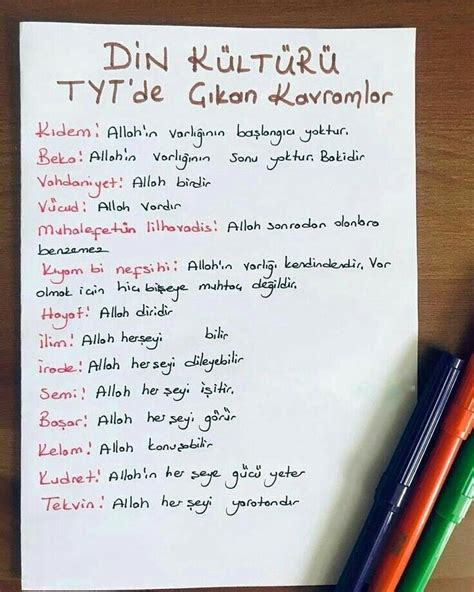 DİN KÜLTÜRÜ
TYT'de Çıkan Kavramlar
Kıdem: Allah'ın varlığının başlangıcı yoktur.
Beka: Allah'ın varlığının sonu yoktur. Bakidir
Vahdaniyet: Allah birdir
Vücud: Allah vardır
Muhalefetün lilhavadis: Allah sonradan olanlara
benzemez
Kıyam bi nefsihi: Allah'ın varlığı kendindendir. Var
olmak icin hiç bişeye muhtaç değildir.
Hayat: Allah diridir
İlim: Allah herşeyi bilir
İrade: Allah her şeyi dileyebilir
Semi: Allah her şeyi işitir.
Basar: Allah her şeyi görür
Kelam: Allah konuşabilir
Kudret: Allah'ın her şeye gücü yeter
Tekvin: Allah her şeyi yaratandır